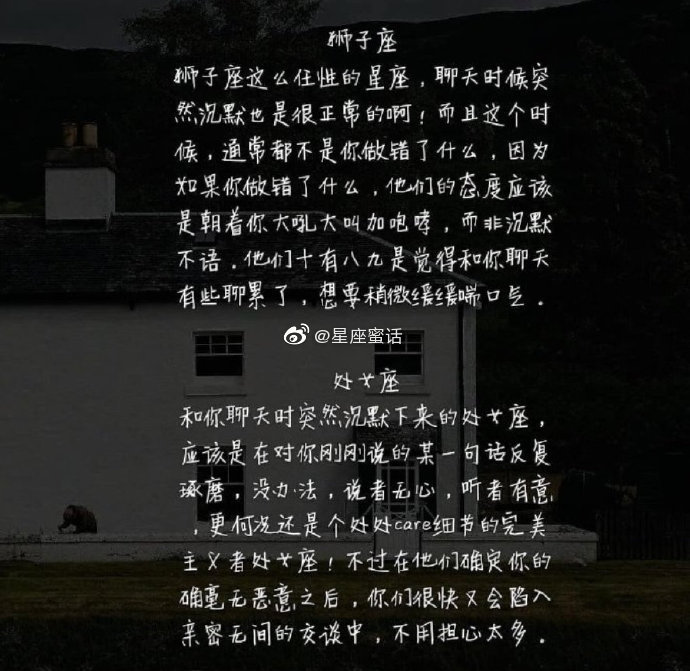 狮子座
狮子座这么任性的星座，聊天时候突
然沉默也是很正常的啊！而且这个时
候，通常都不是你做错了什么，因为
如果你做错了什么，他们的态度应该
是朝着你大吼大叫加咆哮，而非沉默
不语．他们十有八九是觉得和你聊天
有些聊累了，想要稍微缓缓喘口气．
@星座蜜话
处女座
和你聊天时突然沉默下来的处女座，
应该是在对你刚刚说的某一句话反复
琢磨，没办法，说者无心，听者有意
，更何况还是个处处care细节的完美
主义者处女座！不过在他们确定你的
确毫无恶意之后，你们很快又会陷入
亲密无间的交谈中，不用担心太多．